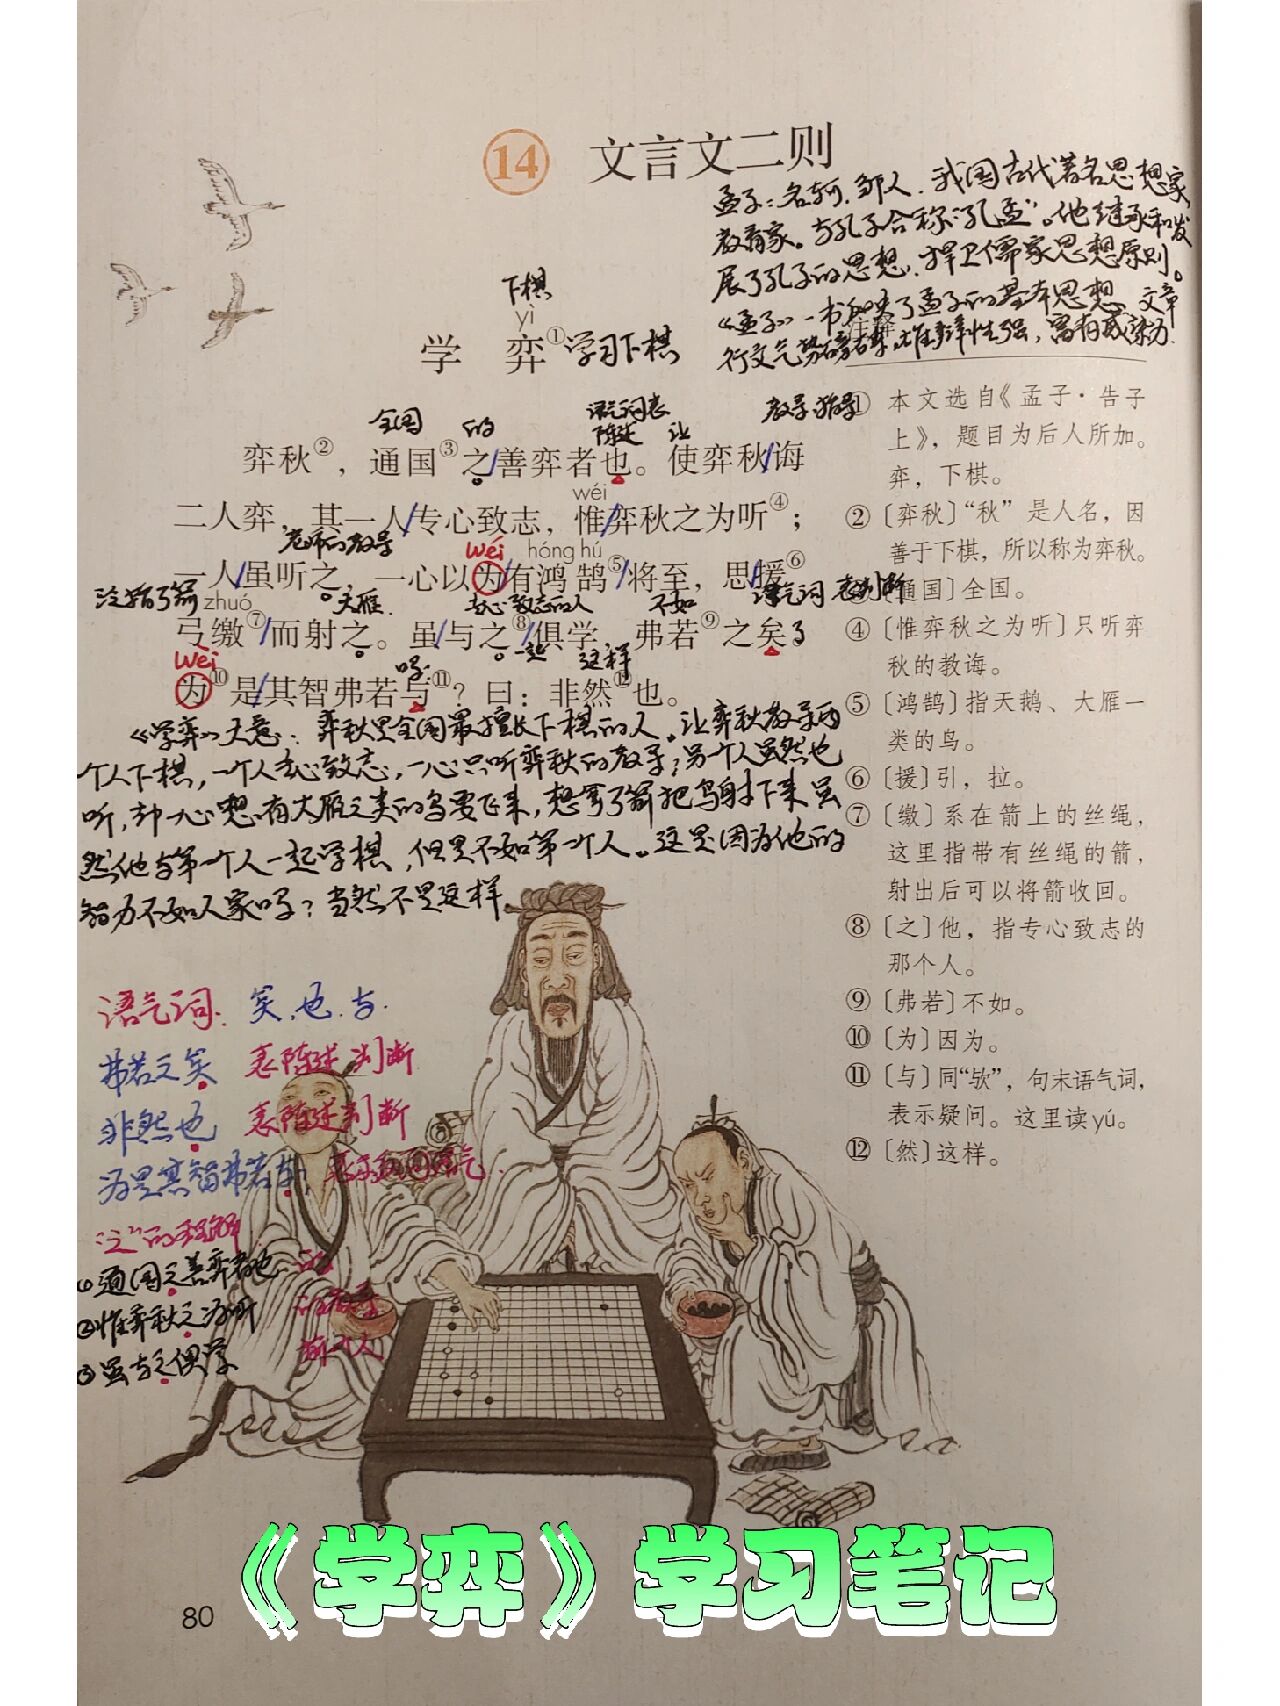 14 文言文二则
孟子:名轲,邹人,我国古代著名思想家,
教育家。与孔子合称“孔孟”。他继承和发
展了孔子的思想,捍卫儒家思想原则。
《孟子》一书反映了孟子的基本思想,文章
行文气势磅礴,雄辩性强,富有感染力.
注释
下棋
yì
学 弈① 学习下棋
全国 的 语气词表陈述 让 教导 指导
弈秋②,通国③之/善弈者也。使弈秋/诲
wéi
二人弈,其一人/专心致志,惟/弈秋之为听④;
老师的教导 wéi hóng hú
一人/虽听之,一心以为/有鸿鹄⑤/将至,思/援⑥
zhuó 大雁 专心致志的人 不如 语气词 表判断
弓缴⑦/而射之。虽/与之⑧/俱学,弗若⑨之矣了
wèi 吗 一起 这样
为⑩是/其智弗若与⑪?曰:非然⑫也。
《学弈》大意:弈秋是全国最擅长下棋的人。让弈秋教导两
个人下棋,一个人专心致志,一心只听弈秋的教导;另一个人虽然也
听,却一心想有大雁之类的鸟要飞来,想拿了箭把鸟射下来虽
然他与第一个人一起学棋,但是不如第一个人。这是因为他的
智力不如人家吗?当然不是这样。
语气词. 矣.也.与.
弗若之矣 表陈述判断
非然也 表陈述判断
为是其智弗若与 表示疑问语气
“之”的理解
①通国之善弈者也 的
②惟弈秋之为听 的教导
③虽与之俱学 那个人
① 本文选自《孟子·告子
上》,题目为后人所加。
弈,下棋。
② 〔弈秋〕“秋”是人名,因
善于下棋,所以称为弈秋。
③ 〔通国〕全国。
④ 〔惟弈秋之为听〕只听弈
秋的教诲。
⑤ 〔鸿鹄〕指天鹅、大雁一
类的鸟。
⑥ 〔援〕引,拉。
⑦ 〔缴〕系在箭上的丝绳,
这里指带有丝绳的箭,
射出后可以将箭收回。
⑧ 〔之〕他,指专心致志的
那个人。
⑨ 〔弗若〕不如。
⑩ 〔为〕因为。
⑪ 〔与〕同“欤”,句末语气词,
表示疑问。这里读yú。
⑫ 〔然〕这样。
《学弈》学习笔记
80